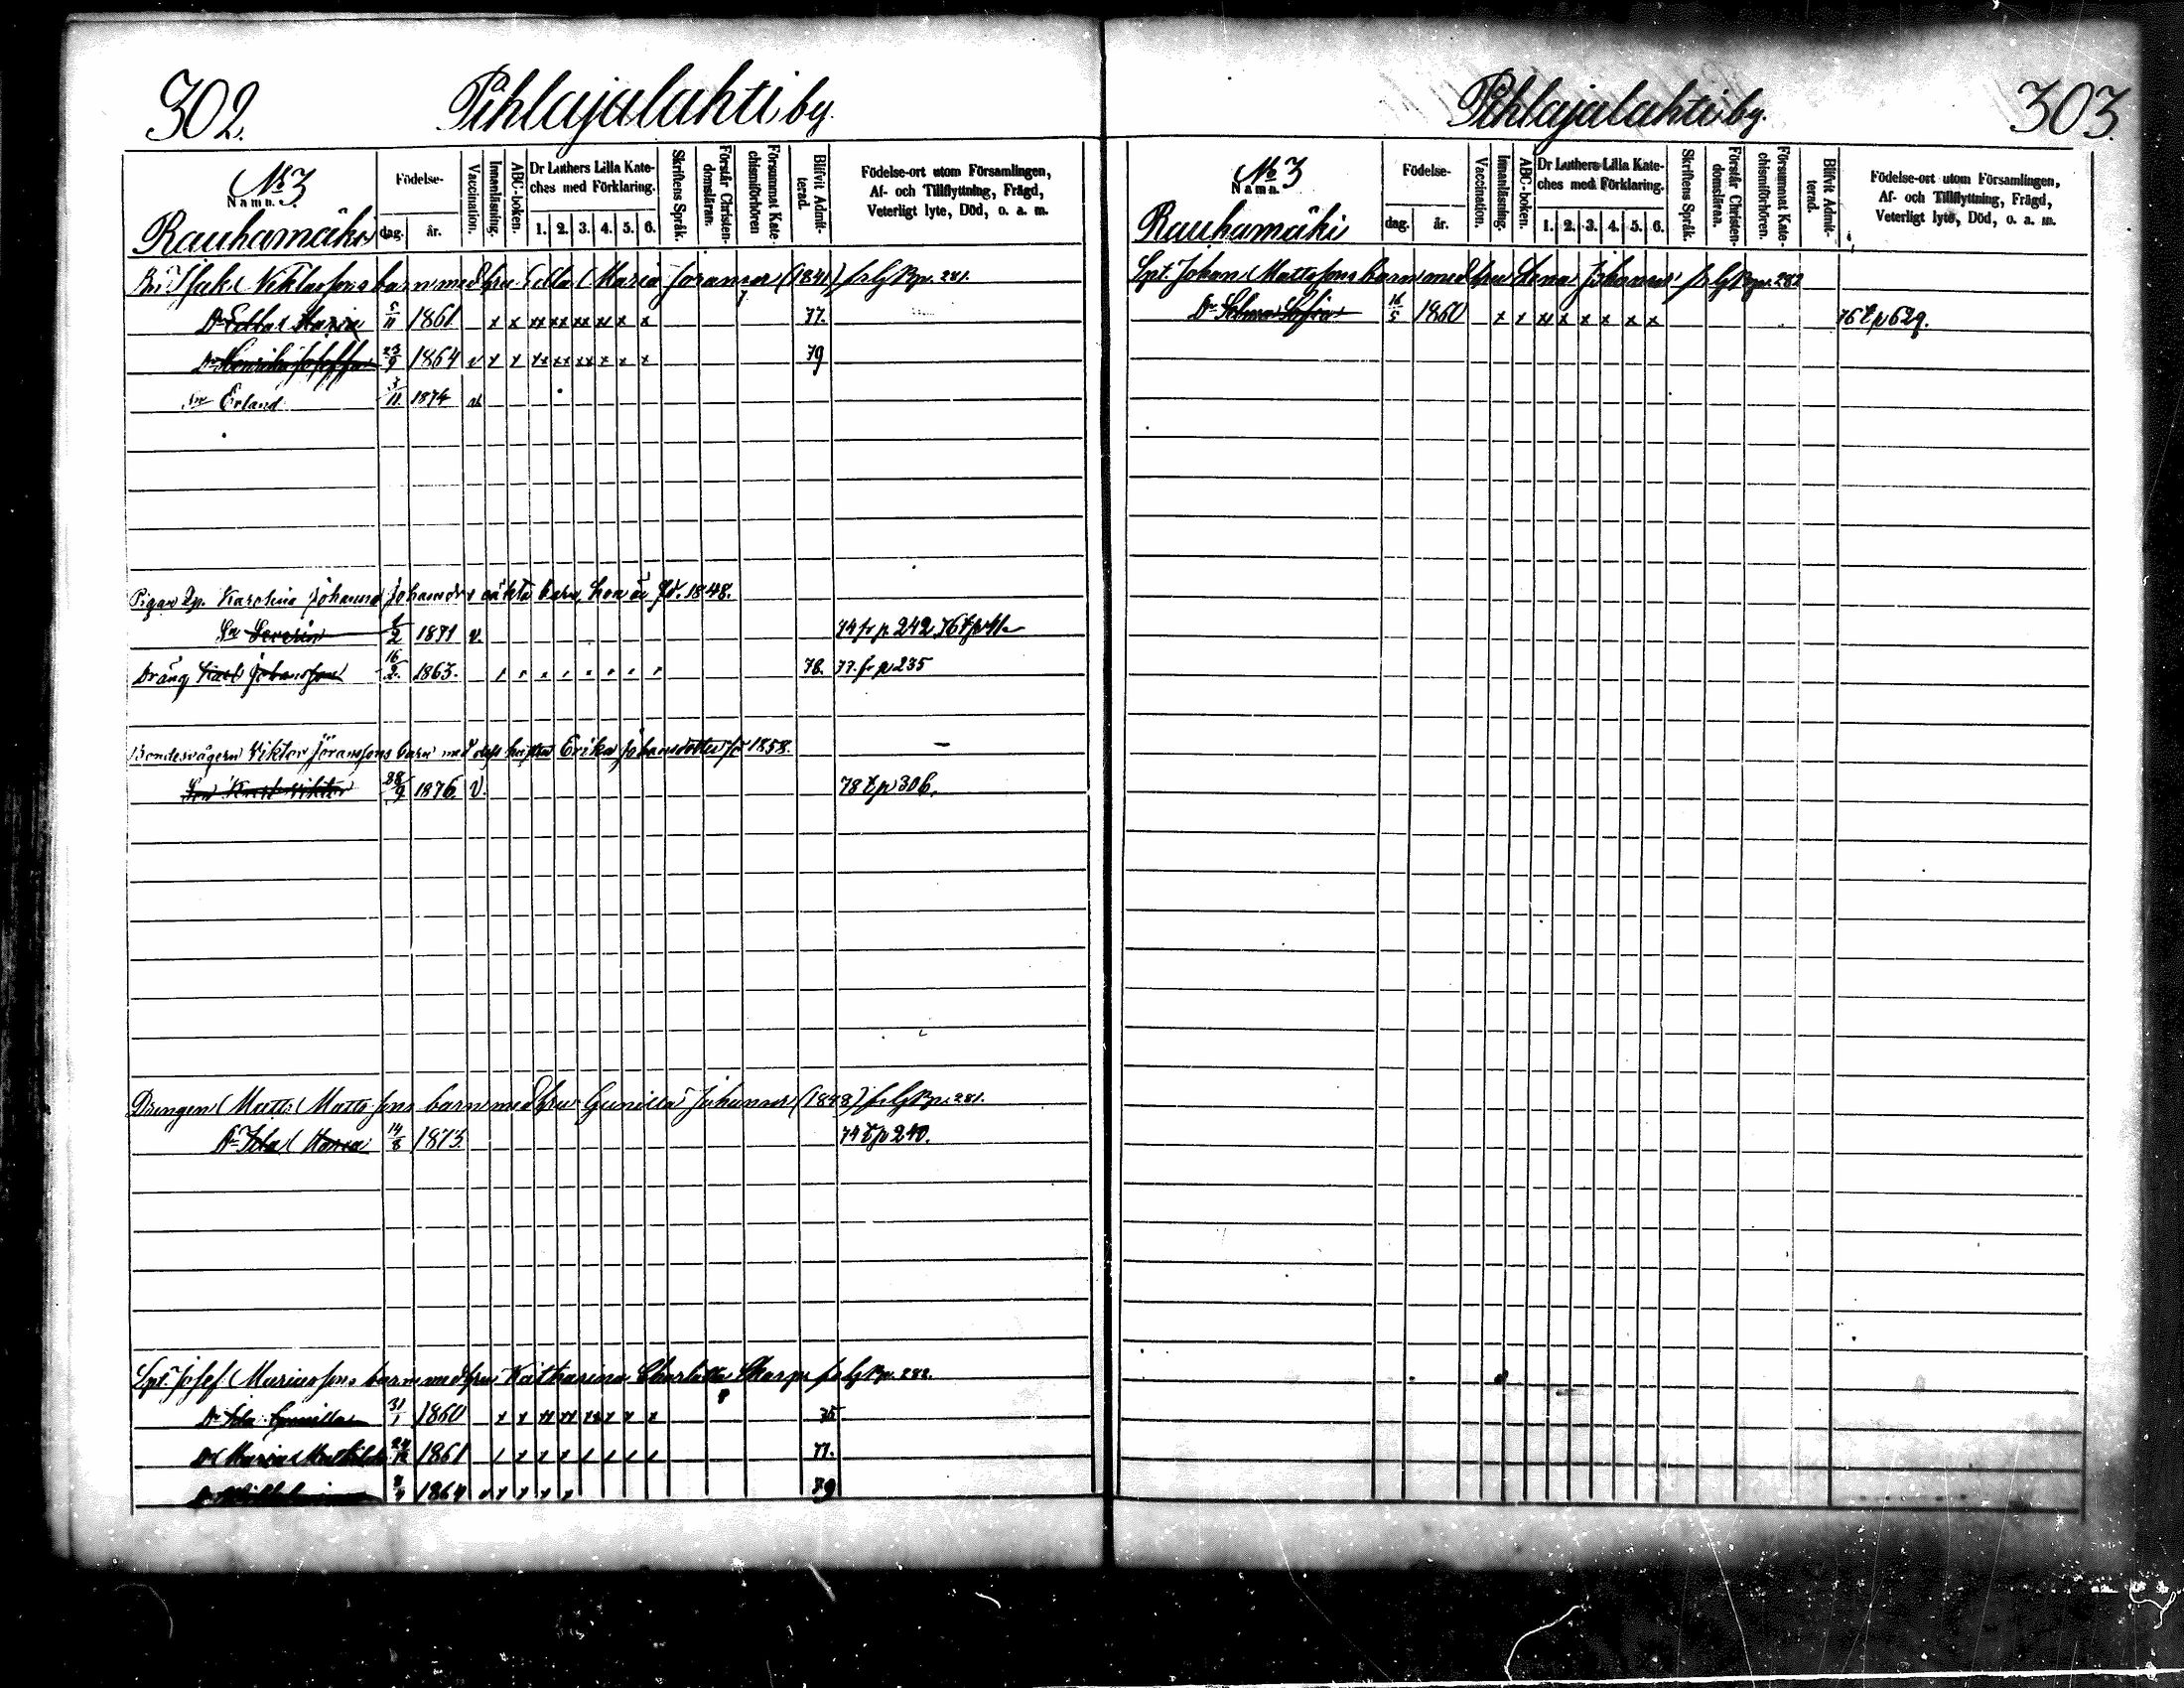 302.
Pihlajalahti by.
No 3
Namn.
Rauhamäki
Födelse-
dag.
år.
Vaccination.
Innanläsning.
ABC-boken.
Dr Luthers Lilla Kate-
ches med Förklaring.
1. 2. 3. 4. 5. 6.
Skriftens Språk.
Förstår Christen-
domsläran.
Försummat Kate-
chismiförhören
Blifvit Admit-
terad.
Födelse-ort utom Församlingen,
Af- och Tillflyttning, Frägd,
Veterligt lyte, Död, o. a. m.
Isak Niklassons barn med hru Edla Maria Jöransr (1841) se K Bp. 281.
Dr Edla Maria 5/11 1861 x x xx xx xx x x x 77.
23/9 1864 v x x xx xx xx x x x 79
Son Erland 3/11 1874
Pigan Karolina Johanna Johansdrs oäkta barn, hon är fd. 1848.
Sn Severin 1/2 1871 v. 74 fr p 242
Dräng Karl Johansson 16/2 1863. 78. 77. fr p 235
Bondesvågern Viktor Jöranssons barn med dess hustru Erika Johansdotter fd 1858.
Son Karl Viktor 28/9 1876 V. 78 t p 306.
Drängen Matts Mattssons barn med hru Gunilla Johansr (1848) se K Bp. 281.
Dr Ida Maria 14/8 1873. 74 t p 240.
Spt. Josef Mariassons barn med hru Katharina Charlotta Skarp se K Bp. 282.
Dr Ida Gunilla 31/1 1860 x x xx xx xx x x x 75
Dr Maria Mathilda 1861 77.
Dr Wilhelmina 1864 79
303.
Pihlajalahti by.
No 3
Namn.
Rauhamäki
Födelse-
dag.
år.
Vaccination.
Innanläsning.
ABC-boken.
Dr Luthers Lilla Kate-
ches med Förklaring.
1. 2. 3. 4. 5. 6.
Skriftens Språk.
Förstår Christen-
domsläran.
Försummat Kate-
chismiförhören.
Blifvit Admit-
terad.
Födelse-ort utom Församlingen,
Af- och Tillflyttning, Frägd,
Veterligt lyte, Död, o. a. m.
Spt. Johan Mattssons barn med hru Lena Johansr se K Bp. 282
Dr Selma Sofia 16/5 1860 x x xx x x x x x 76 t p 629.